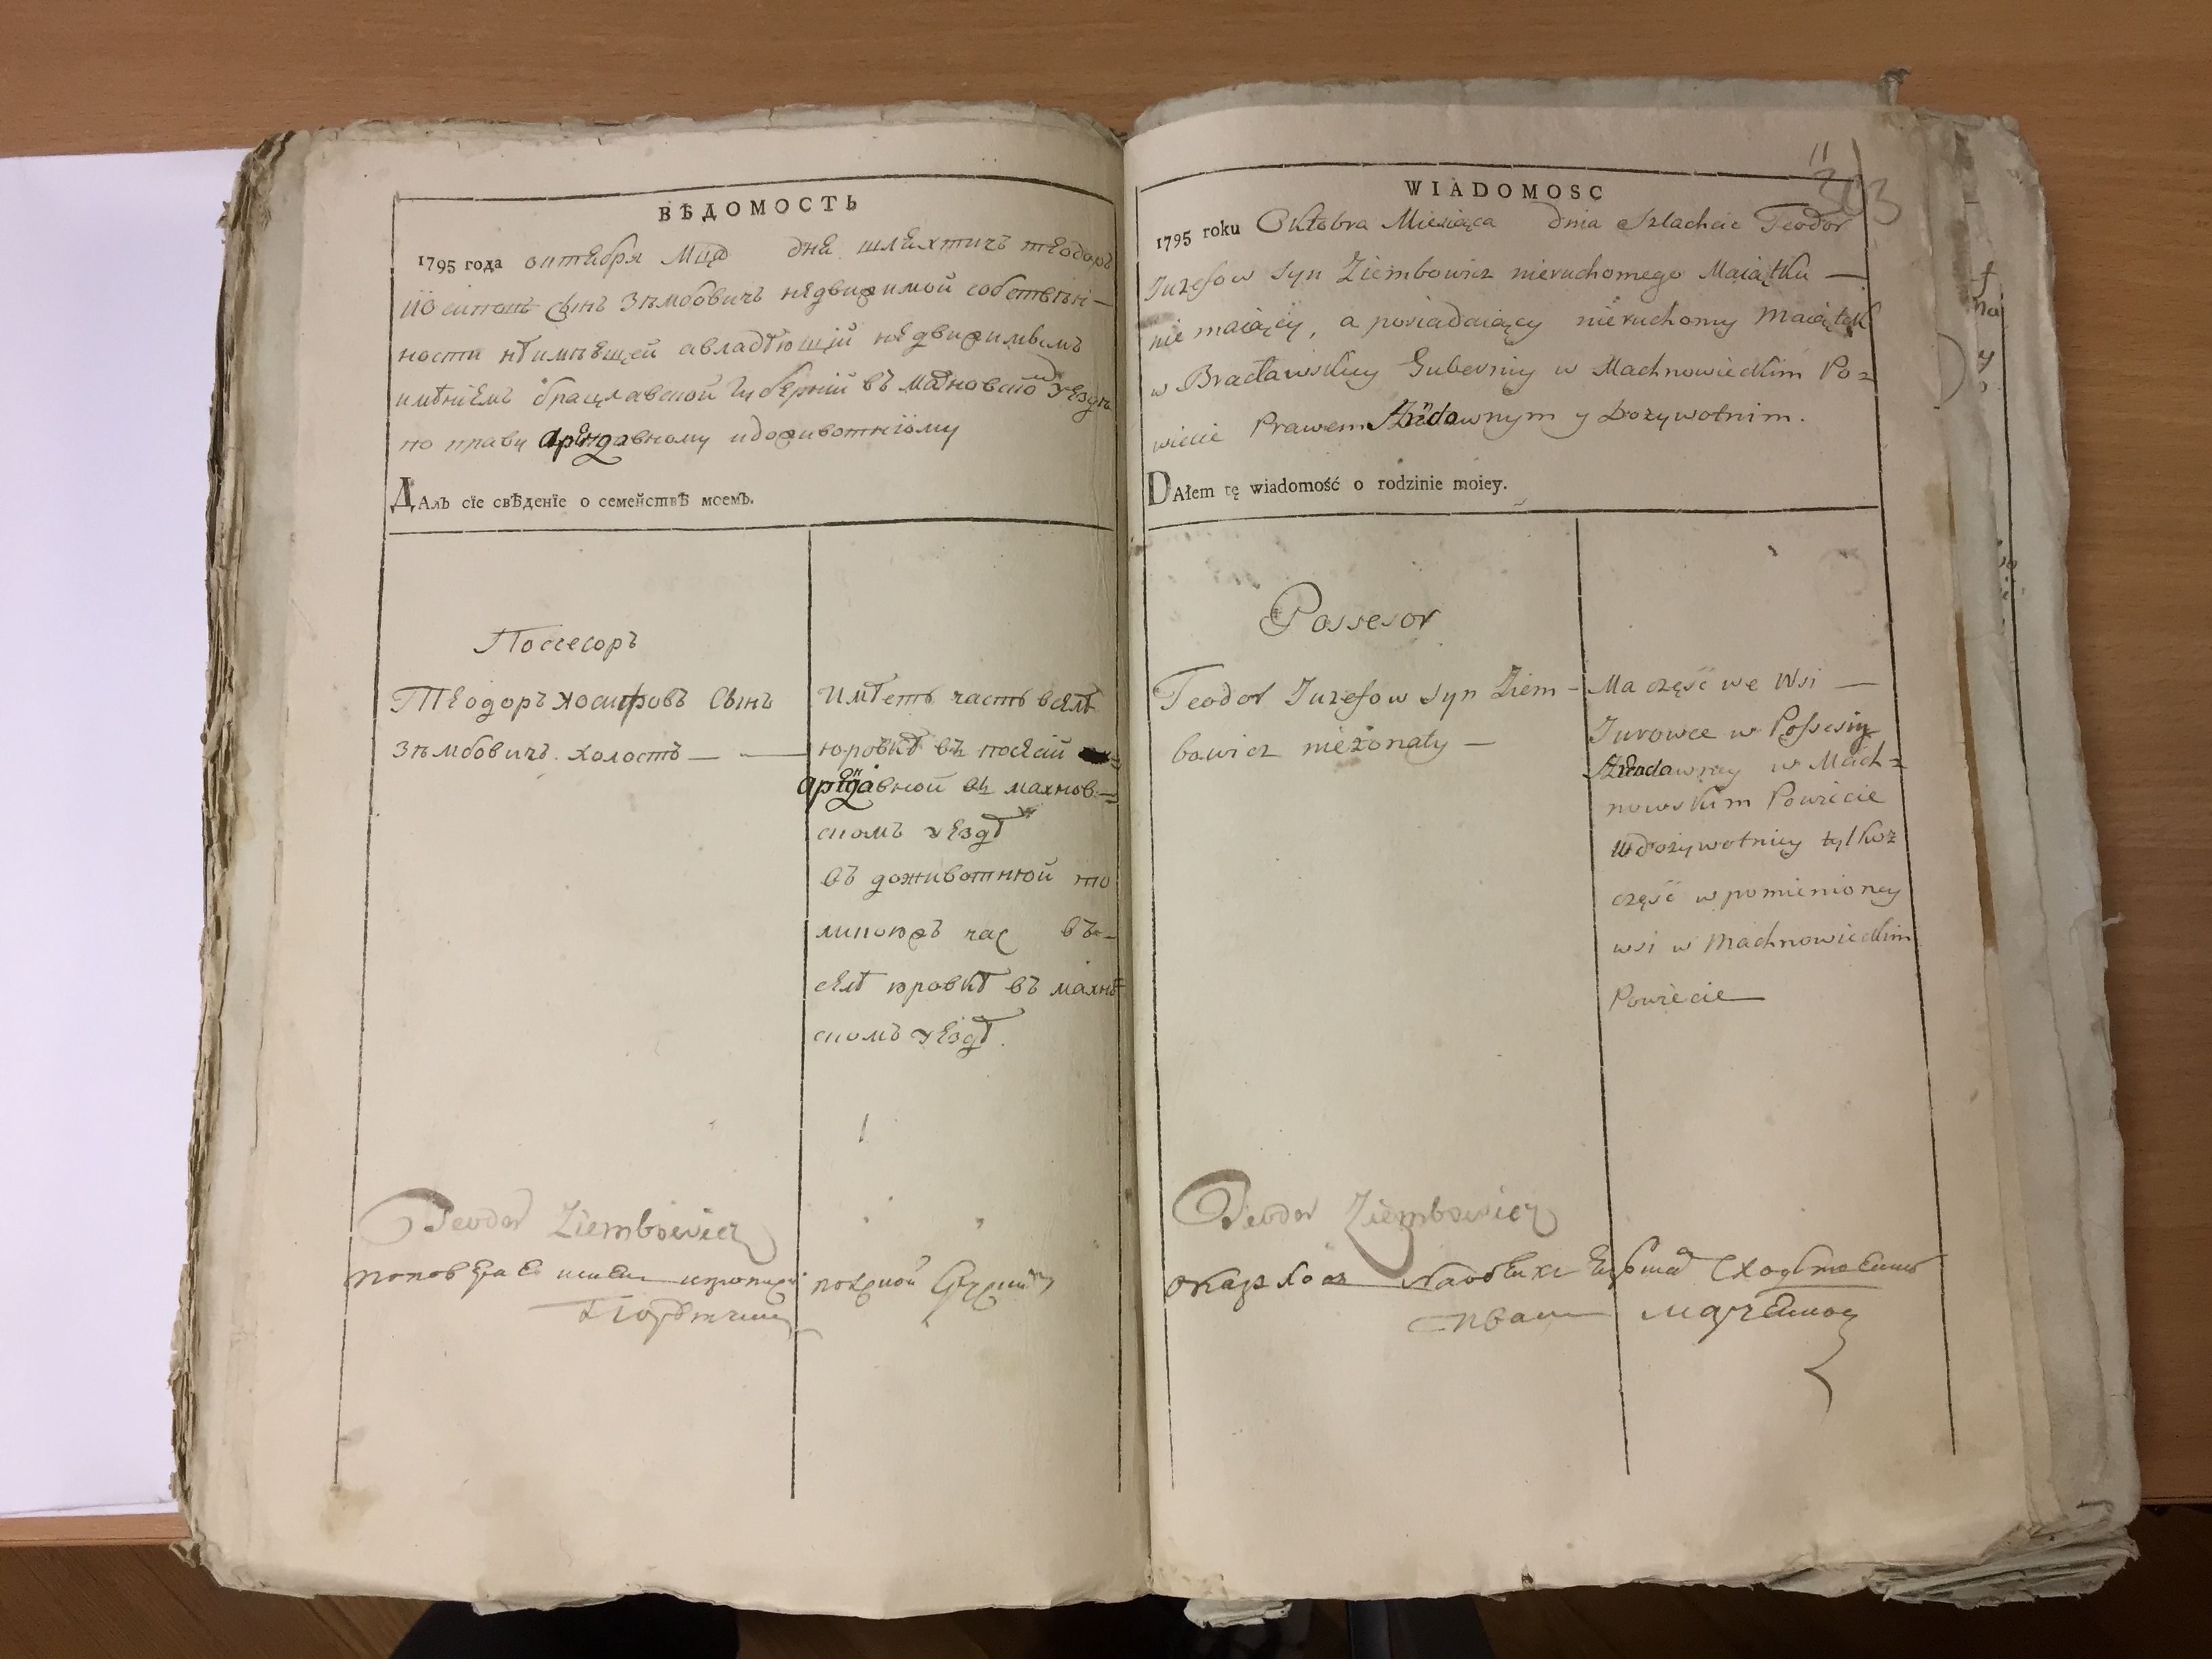 ВѢДОМОСТЬ
1795 года октября Мца дня шляхтичъ теодоръ
сынъ Зѣмбовичъ недвижимой собствѣн-
ности нѣимѣещей авладѣющій недвижимымъ
имѣнiемъ брацлавской губерній въ махновско уезде
по праву арендавному идоживотнiому
ДАлъ сїе свѣденїе о семействѣ моемъ.
Поссесоръ
Теодоръ иосифовъ Сынъ
Зѣмбовичъ холостъ —
Имѣетъ часть вселѣ
юровкѣ въ посесiй
арендавной въ махнов=
скомъ уездѣ
въ доживотнюй то
ликожъ час въ-
селѣ юровкѣ въ махнов
скомъ уездѣ.
Teodor Ziembowicz
WIADOMOSC
11
303
1795 roku Oktobra Miesiąca dnia Szlachcic Teodor
Juzefow Syn Ziembowicz nieruchomego Maiątku —
nie maiący, a posiadaiący nieruchomy Maiątek
w Bracławskiey Guberniy w Machnowieckim Po=
wiecie Prawem Arędownym y Dożywotnim.
DAłem tę wiadomość o rodzinie moiey.
Possesor
Teodor Juzefow Syn Ziem-
bowicz nieżonaty —
Ma część we Wsi —
Jurowce w Possesiy
Arendowney w Mach=
nowskim Powiecie
w dożywotniey tylkoż
część w pomienioney
wsi w Machnowieckim
Powiecie
Teodor Ziembowicz